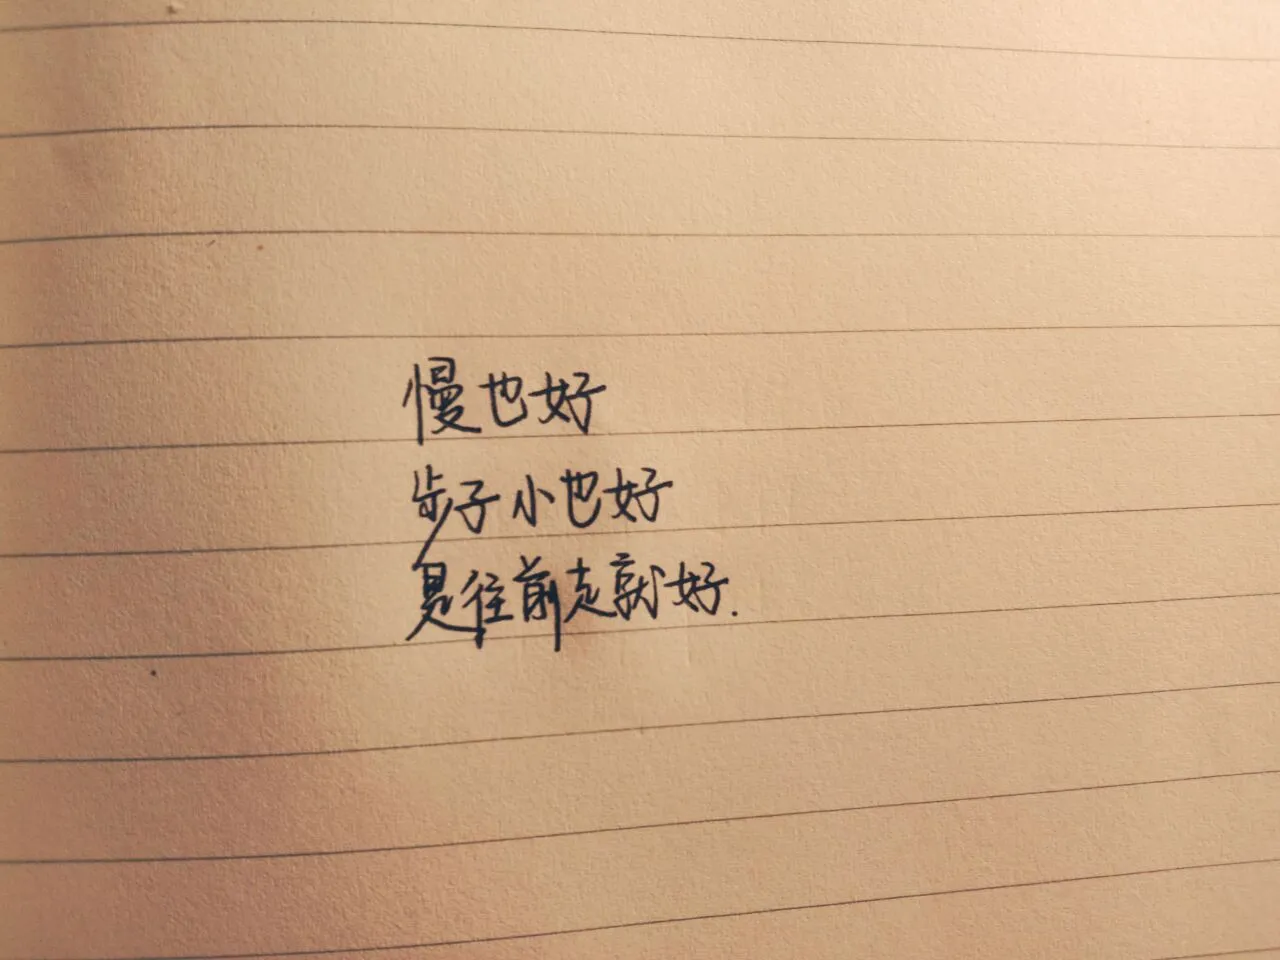 慢也好
步子小也好
是往前走就好.